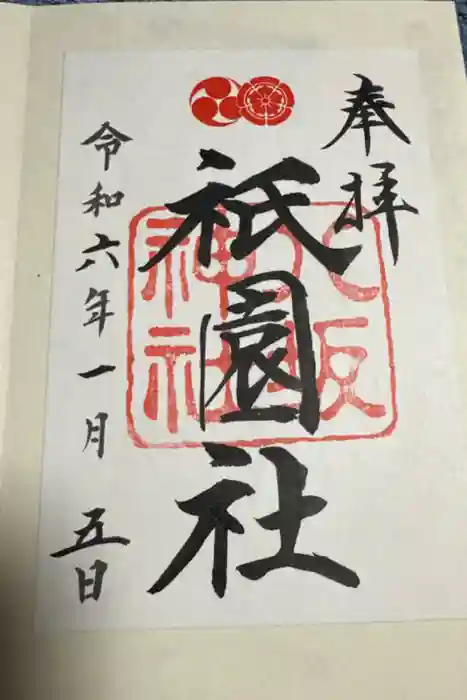 奉拝
祇園社
八坂
神社
令和六年一月五日